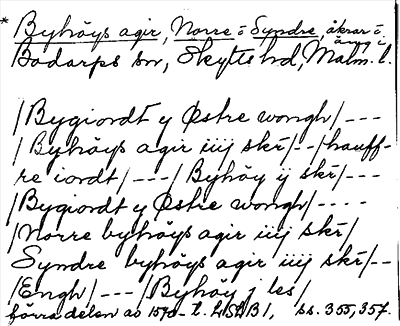 * Byhöys agir, Norre o Syndre, åkrar o.
äng i
Bodarps sn, Skytts hd, Malm. l.
/Bygiordt y Østre wongh/---
/Byhöys agir iiij skr/--/hauff-
re iordt/---/Byhöy ij skr/---
/Bygiordt y Østre wongh/----
/Norre byhöys agir iiij skr/
Syndre byhöys agir iiij skr/--
/Engh/---/Byhöy j les/
förra delen av 1570-t. LSAB1, ss. 355, 357.